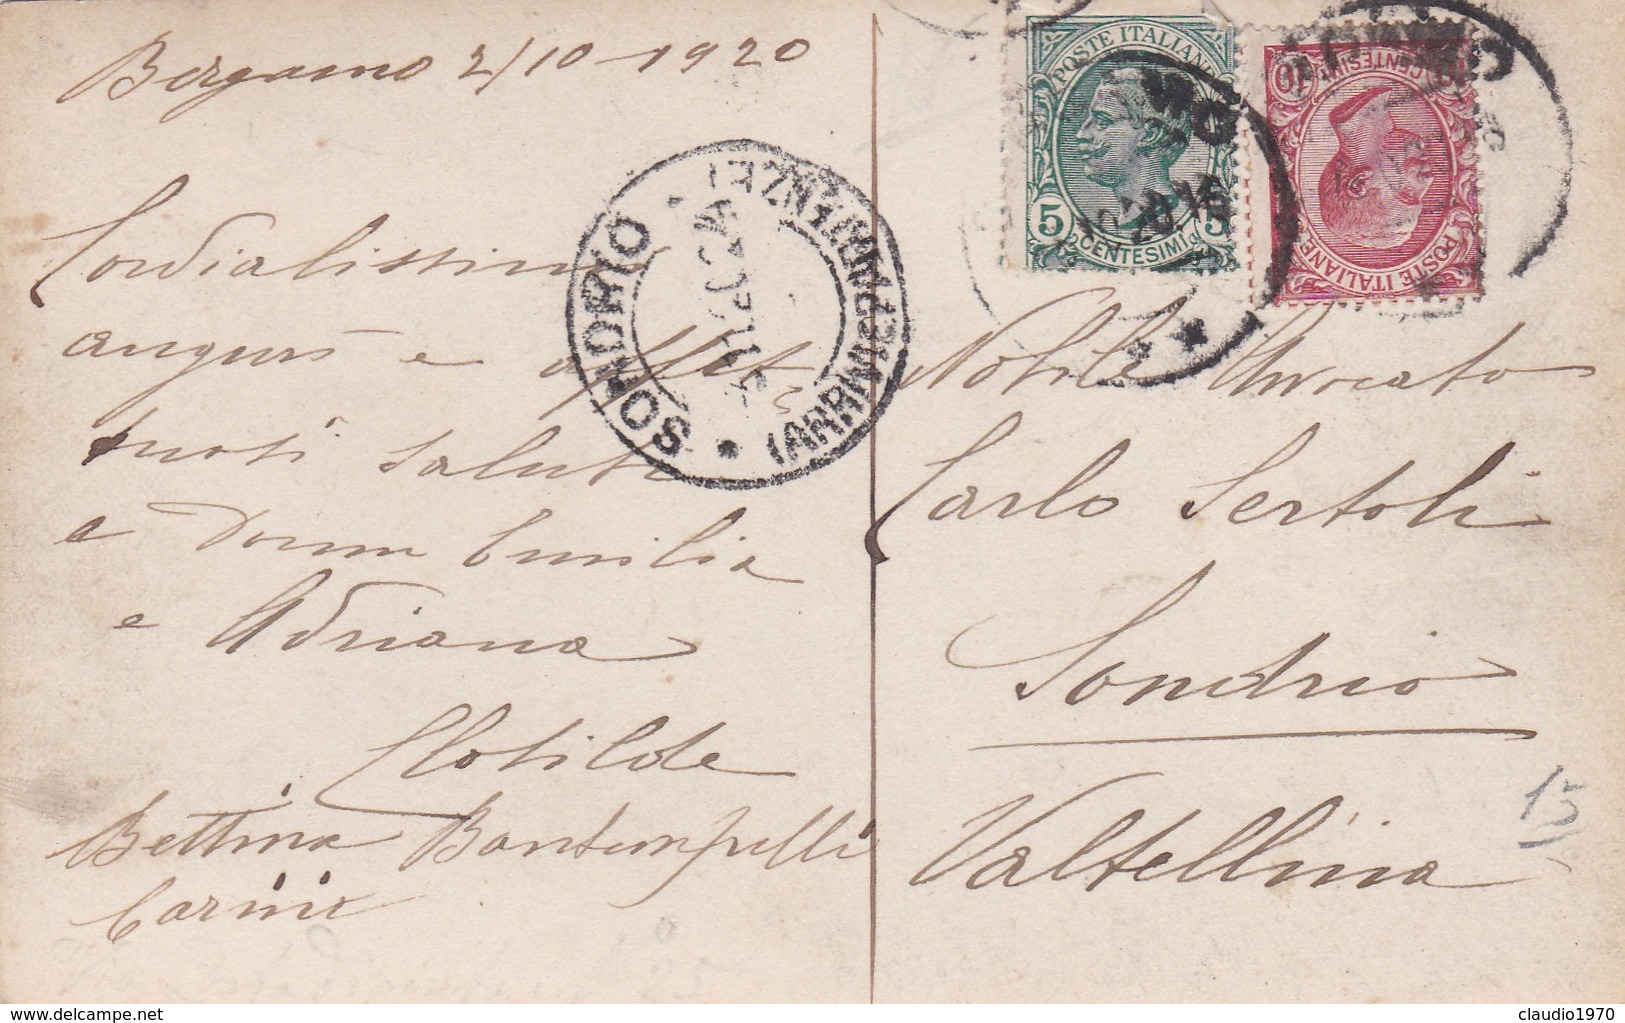 Bergamo 2/10-1920
Cordialissimi
auguri e affet.
nosi saluti
a Donna Emilia
e Adriana
Clotilde
Bettina Bontempelli
Carini
POSTE ITALIANE
5 CENTESIMI 5
POSTE ITALIANE
10 CENTESIMI
SONDRIO
(ARRIVI E PARTENZE)
Nobile Avvocato
Carlo Sertoli
Sondrio
Valtellina
15
delcampe.net
claudio1970